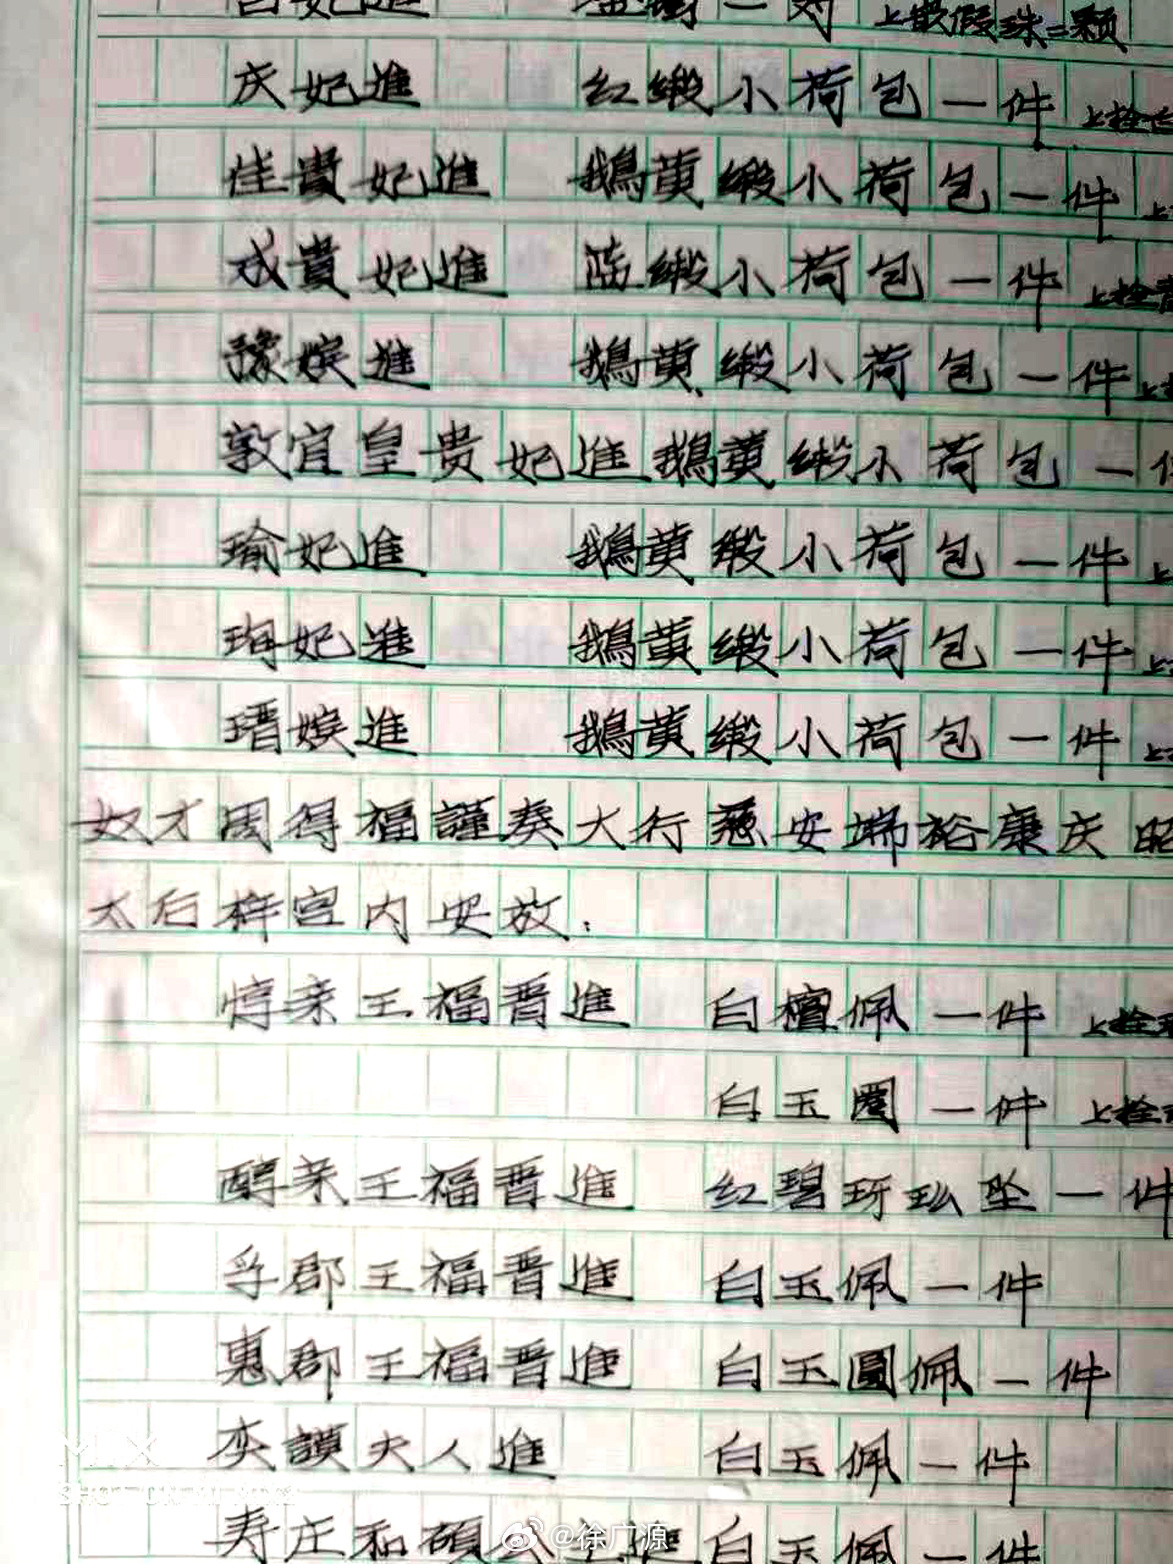 妃進 一对 上嵌假珠二颗
庆妃進 红缎小荷包一件 上拴
佳貴妃進 鵝黄缎小荷包一件 上
成貴妃進 蓝缎小荷包一件 上拴
豫嫔進 鵝黄缎小荷包一件 上
敦宜皇贵妃進 鵝黄缎小荷包一件
瑜妃進 鵝黄缎小荷包一件 上
珣妃進 鵝黄缎小荷包一件 上
瑨嫔進 鵝黄缎小荷包一件 上
奴才周得福謹奏大行慈安端裕康庆昭
太后梓宫内安放：
惇亲王福晋進 白檀佩一件 上拴
白玉圈一件 上拴
醇亲王福晋進 红碧玡玜坠一件
孚郡王福晋進 白玉佩一件
惠郡王福晋進 白玉圓佩一件
奕謨夫人進 白玉佩一件
寿庄和碩公主進 白玉佩一件
@徐广源